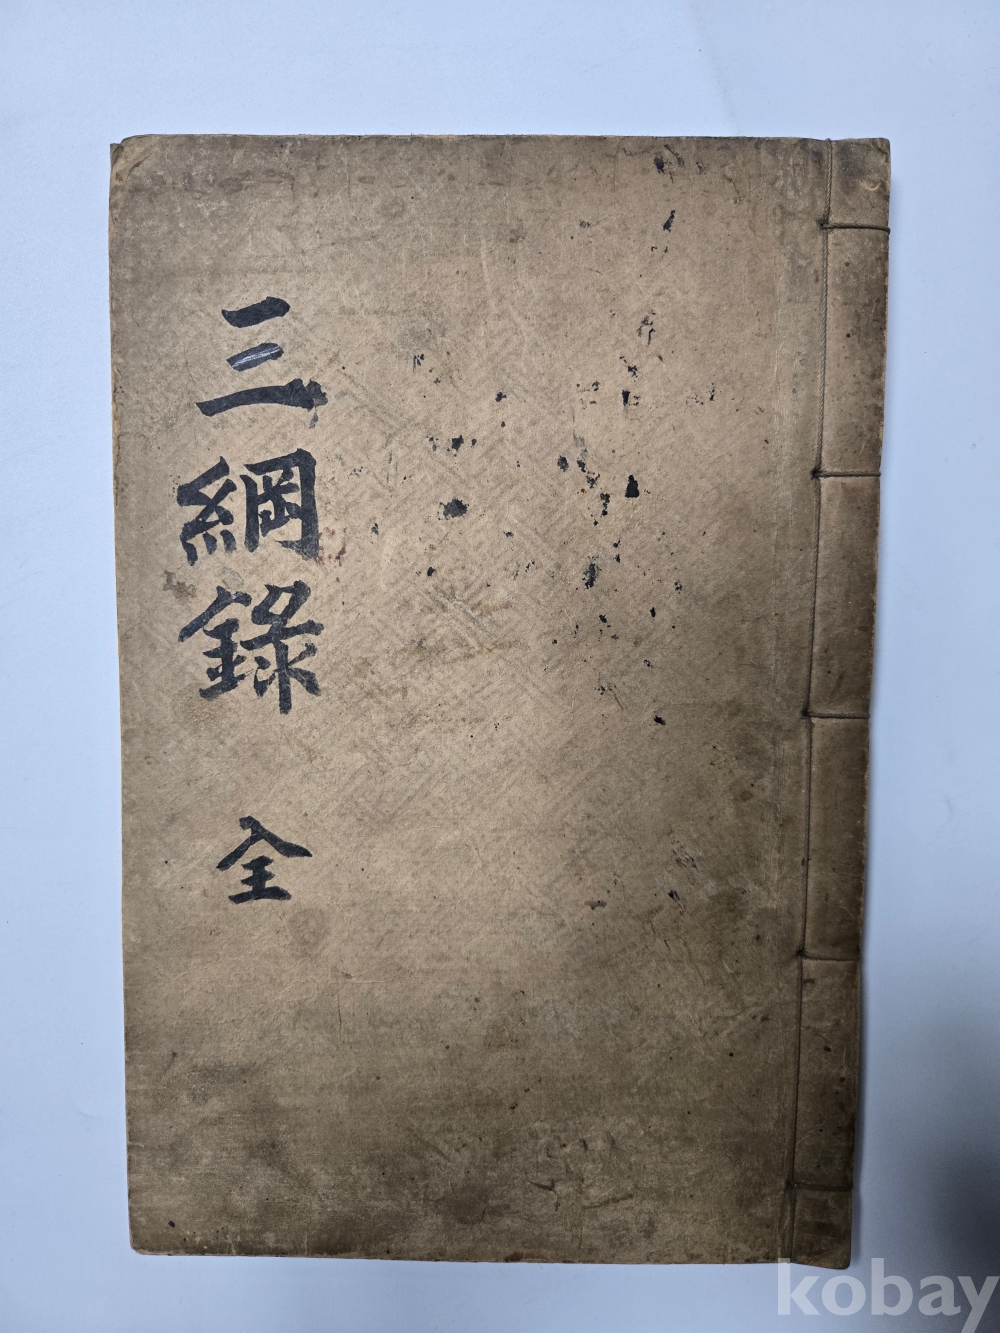 三綱錄 全
kobay